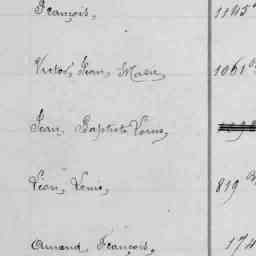 François, 1145
Victor, Jean, Marie 1061
Jean, Baptiste Louis,
Léon, Louis, 819
Amand, François, 174